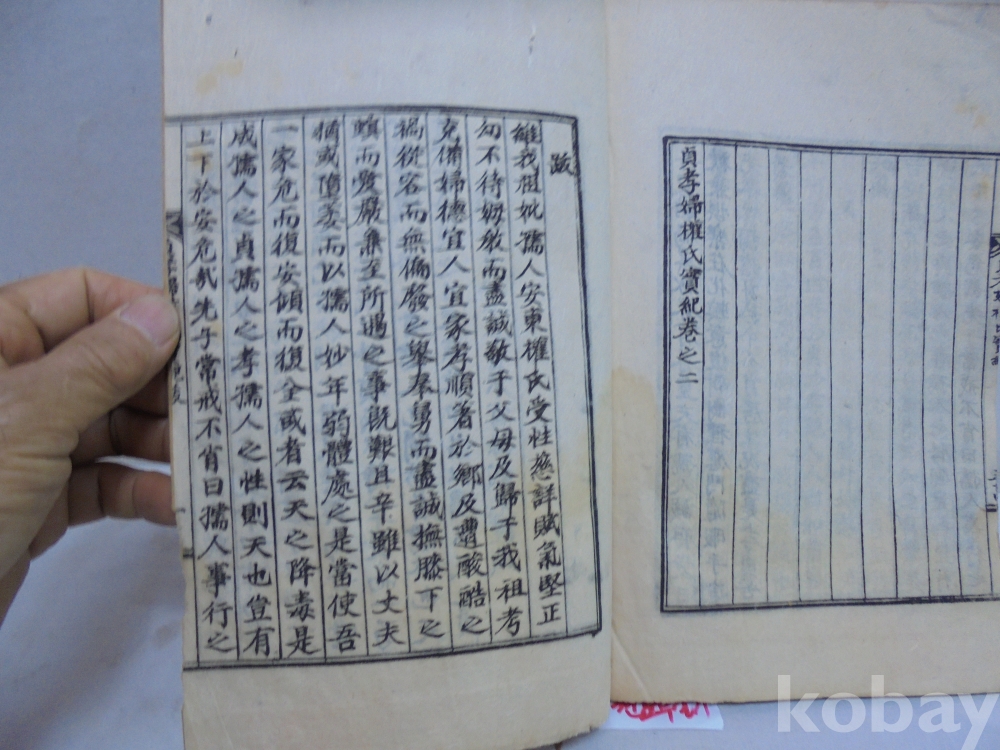 貞孝婦權氏實紀卷之二
跋
維我祖妣孺人安東權氏受性慈詳賦氣堅正
幼不待姆敎而盡誠敬于父母及歸于我祖考
克備婦德宜人宜家孝順著於鄉及遭酸酷之
禍從容而無偏廢之擧奉舅而盡誠撫膝下之
而所遇之事旣艱且辛雖以丈夫
猶或墮委而以孺人妙年弱體處之是當使吾
一家危而復安傾而復全或者云天之降毒是
成孺人之貞孺人之孝孺人之性則天也豈有
上下於安危哉先子常戒不肖曰孺人事行之
kobay